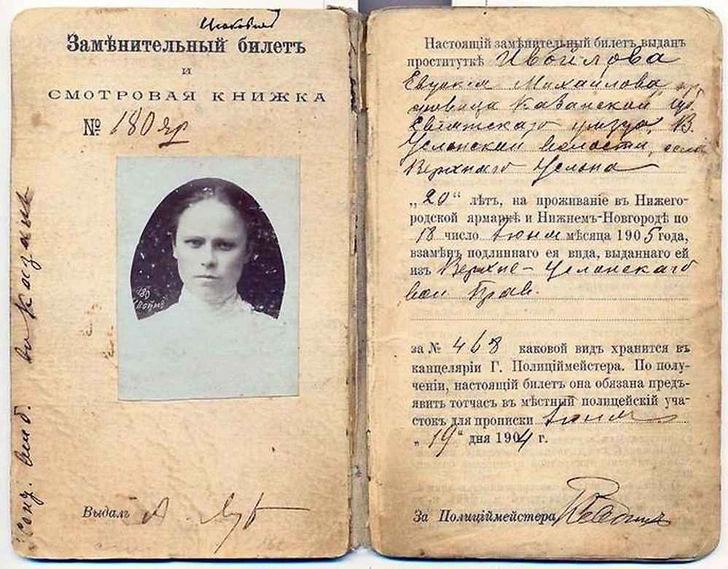 Замѣнительный билетъ
и
СМОТРОВАЯ КНИЖКА
№ 180 яр
Выдалъ
Настоящій замѣнительный билетъ выданъ
проституткѣ Ивойлова
Евгенія Михайлова
Казанской
уѣзда, В.
Услонской волости, села
Верхняго Услона
„20“ лѣтъ, на проживаніе въ Нижего-
родской ярмаркѣ и Нижнемъ-Новгородѣ по
18 число Іюня мѣсяца 1905 года,
взамѣнъ подлиннаго ея вида, выданнаго ей
изъ Верхне-Услонскаго
вол Прав.
за № 468 каковой видъ хранится въ
канцеляріи Г. Полиціймейстера. По полу-
ченіи, настоящій билетъ она обязана предъ-
явить тотчасъ въ мѣстный полицейскій уча-
стокъ для прописки Іюня
„19“ дня 1904 г.
За Полиціймейстера